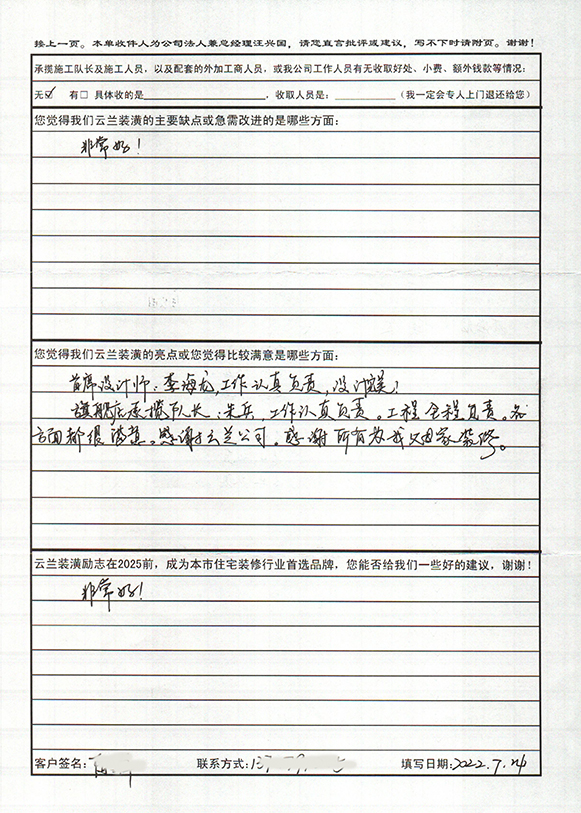 接上一页。本单收件人为公司法人兼总经理汪兴国，请您直言批评或建议，写不下时请附页。谢谢！
承揽施工队长及施工人员，以及配套的外加工商人员，或我公司工作人员有无收取好处、小费、额外钱款等情况：
无☑ 有□ 具体收的是 ，收取人员是： （我一定会专人上门退还给您）
您觉得我们云兰装潢的主要缺点或急需改进的是哪些方面：
非常好！
您觉得我们云兰装潢的亮点或您觉得比较满意是哪些方面：
首席设计师：李海龙，工作认真负责，设计完美！
旗舰店承揽队长：朱兵，工作认真负责。工程全程负责。各
方面都很满意。感谢云兰公司。感谢所有为我们家装修。
云兰装潢励志在2025前，成为本市住宅装修行业首选品牌，您能否给我们一些好的建议，谢谢！
非常好！
客户签名： 联系方式：13 填写日期：2022.7.24